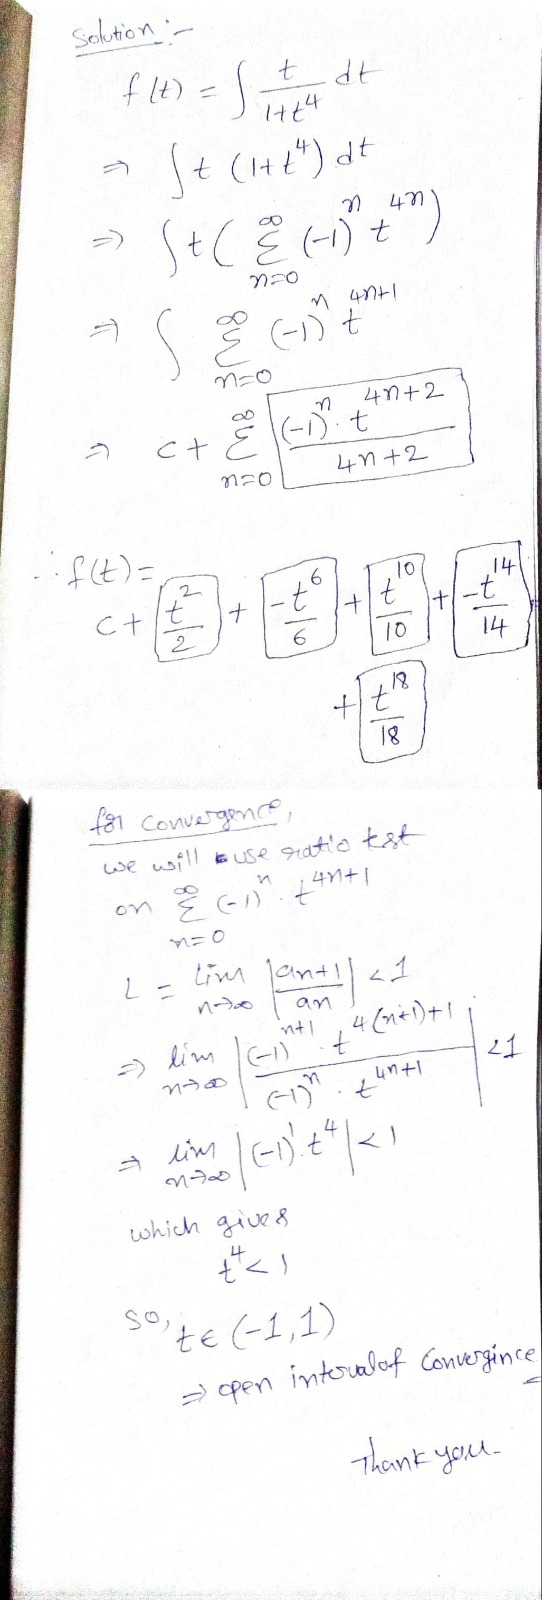 Solution :-
f(t) = ∫ t/(1+t⁴) dt
⇒ ∫ t (1+t⁴) dt
⇒ ∫ t ( Σ_{n=0}^{∞} (-1)ⁿ t⁴ⁿ )
⇒ ∫ Σ_{n=0}^{∞} (-1)ⁿ t⁴ⁿ⁺¹
⇒ c + Σ_{n=0}^{∞} (-1)ⁿ · t⁴ⁿ⁺² / (4n+2)
∴ f(t) =
c + t²/2 + -t⁶/6 + t¹⁰/10 + -t¹⁴/14
+ t¹⁸/18
for convergence,
we will use ratio test
on Σ_{n=0}^{∞} (-1)ⁿ · t⁴ⁿ⁺¹
L = lim_{n→∞} |an+1 / an| < 1
⇒ lim_{n→∞} |(-1)ⁿ⁺¹ · t^{4(n+1)+1} / (-1)ⁿ · t⁴ⁿ⁺¹| < 1
⇒ lim_{n→∞} |(-1)¹ · t⁴| < 1
which gives
t⁴ < 1
so, t ∈ (-1, 1)
⇒ open interval of Convergince
Thank you -